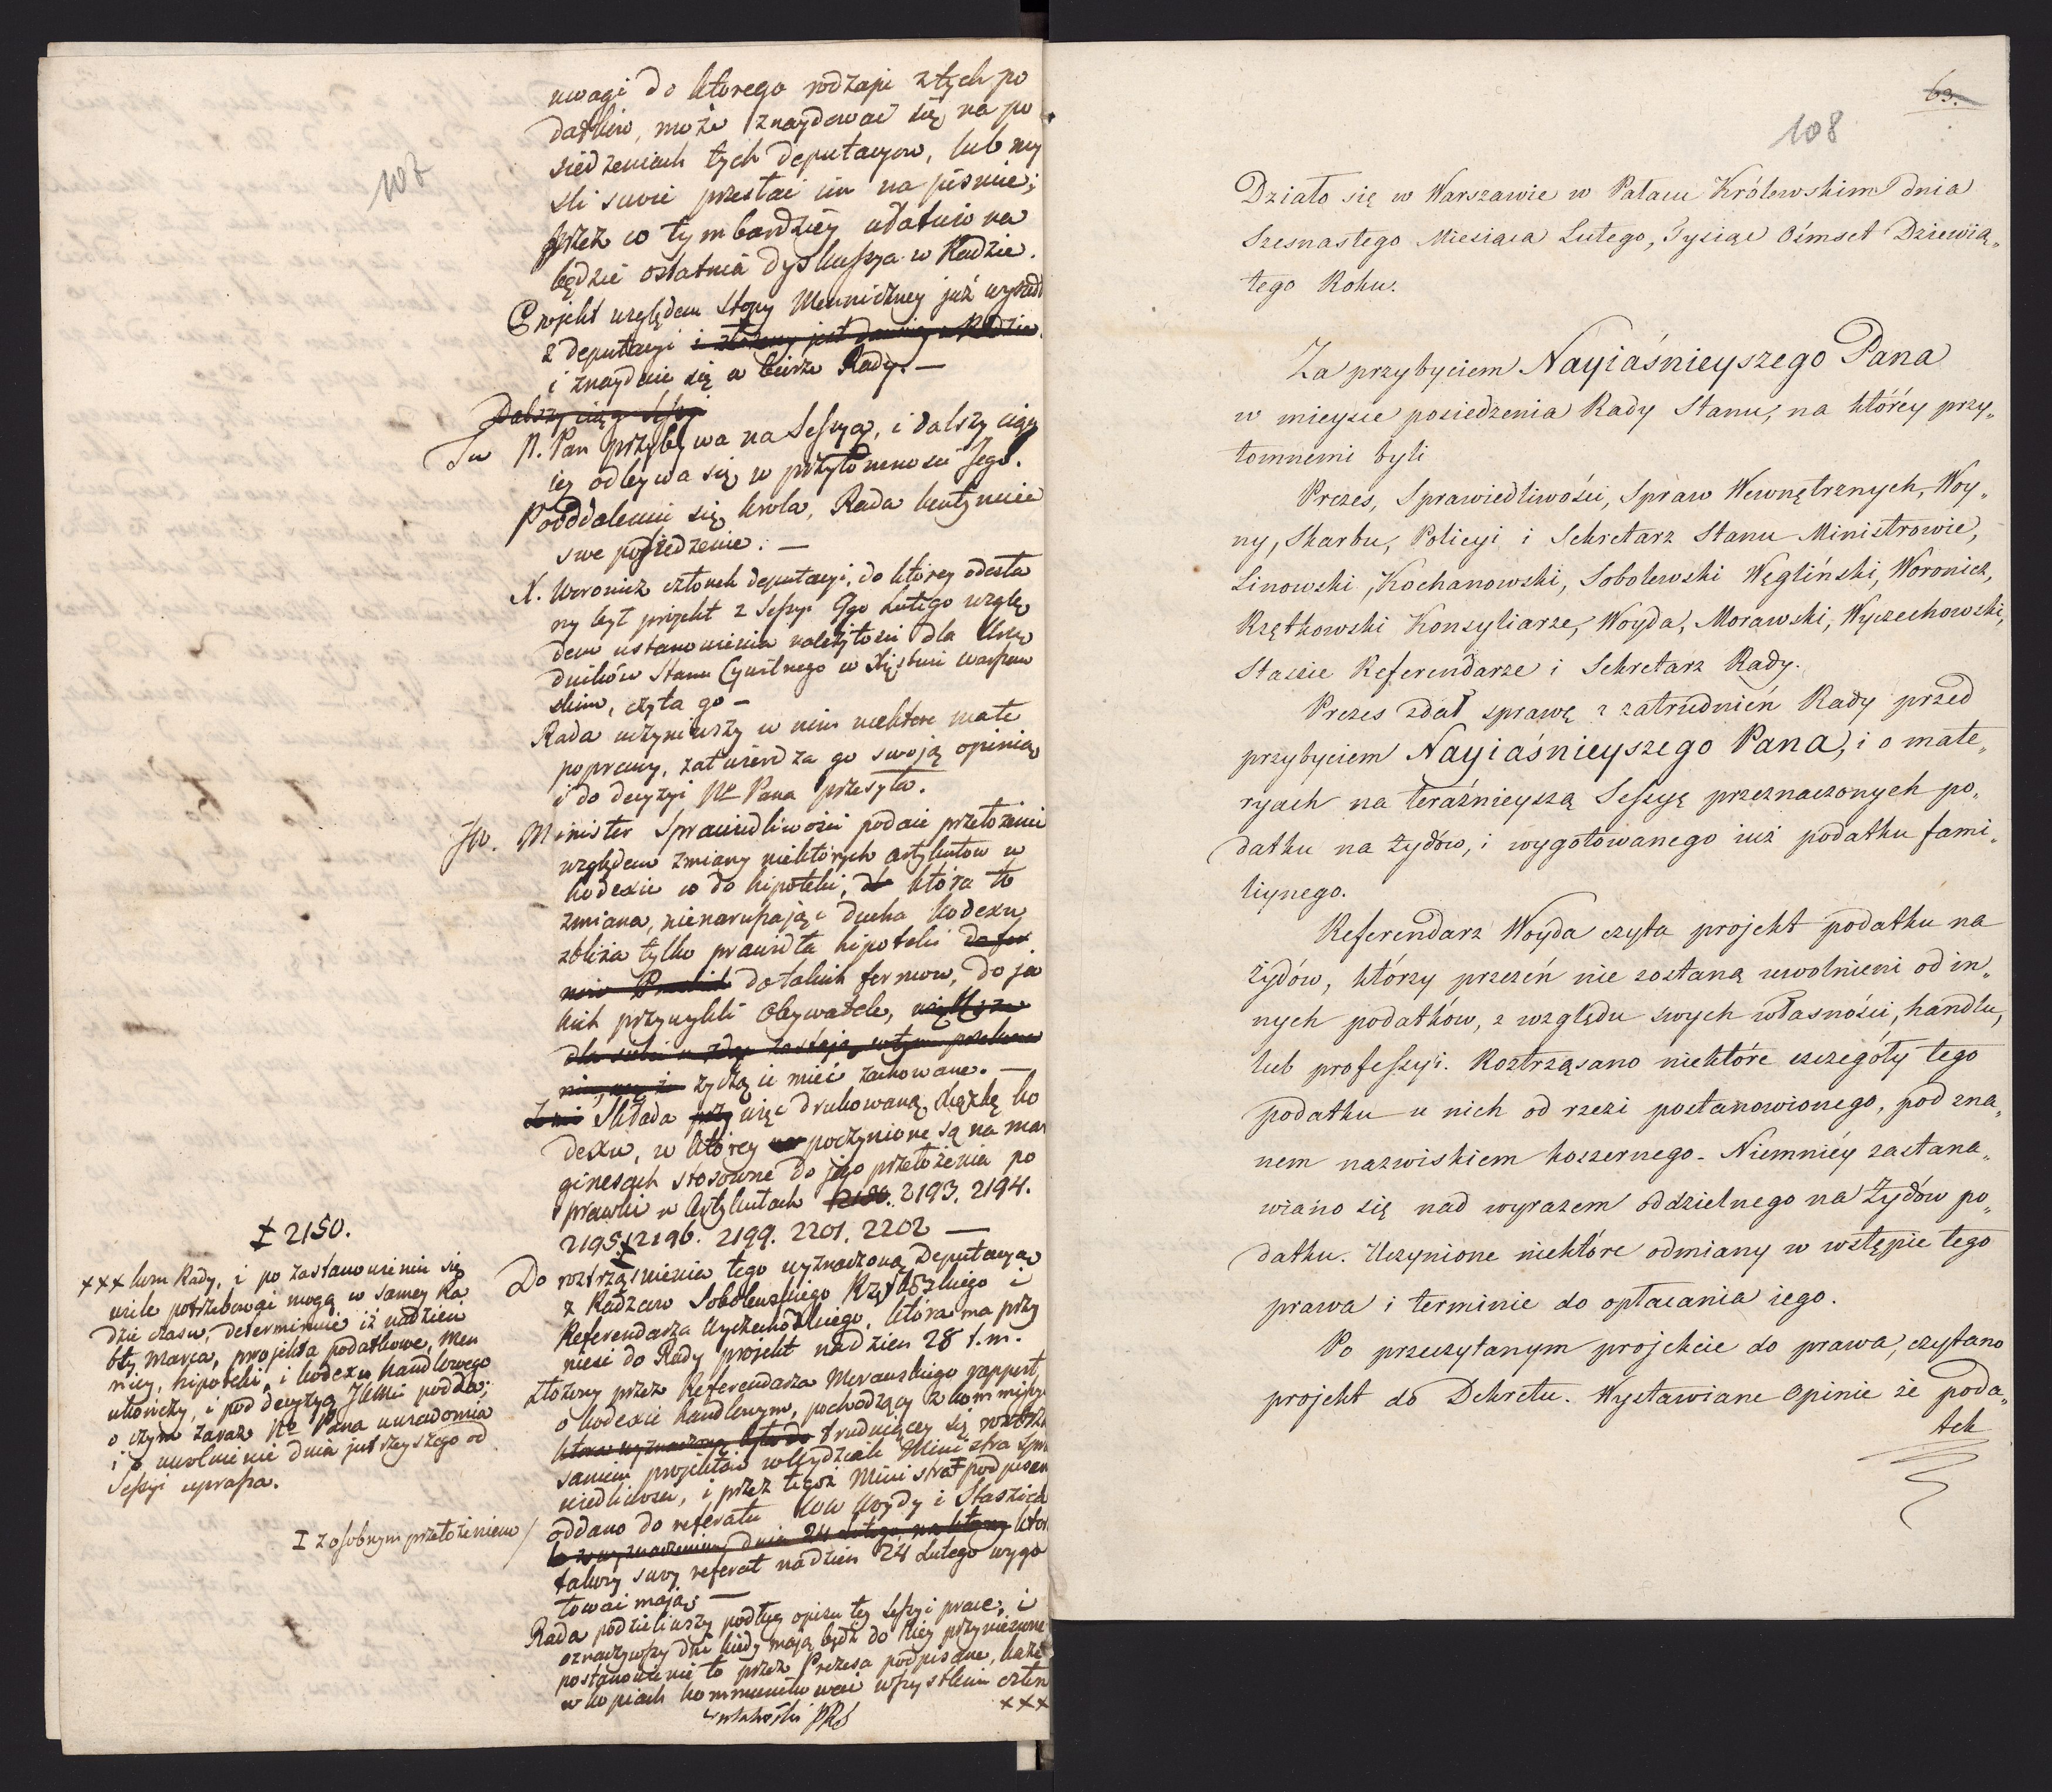 107
uwagi do ktorego rodzaju z tych po
datkow, może znaydować się na po
siedzeniach tych deputacyow, lub my
śli swoie przesłać im na piśmie;
przez co tym bardziey ułatwiona
będzie ostatnia dyskussya w Radzie.
Projekt względem Stopy Menniczney już wyszedł
z deputacyi i złożony jest
i znayduie się w biórze Rady. —
Dalszy ciąg Sessyi
Tu N. Pan przybywa na Sessyą, i dalszy ciąg
iey odbywa się w przytomności Jego.
Po oddaleniu się krola, Rada kontynuie
swe posiedzenie. —
X. Woronicz członek deputacyi, do którey odesła
ny był projekt z Sessyi 9go Lutego wzglę
dem ustanowienia należytości dla Urzę
dników Stanu Cywilnego w Xięstwie Warszaw
skim, czyta go —
Rada uczyniwszy w nim niektore małe
poprawy, zatwierdza go swoią opinią
i do decyzyi Ne Pana przesyła.
JW. Minister Sprawiedliwości podaie przełożenie
względem zmiany niektórych artykułow w
kodexie co do hipoteki, która to
zmiana, nienaruszaiąc ducha kodexu
zbliża tylko prawidła hipoteki
do takich formow, do ja
kich przywykli Obywatele,
życzą ie mieć zachowane. —
Składa więc drukowaną książkę ko
dexu, w którey poczynione są na mar
ginesach stosowne do jego przełożenia po
prawki w Artykułach 2180. 2193. 2194.
2195. ‡ 2196. 2199. 2201. 2202 —
Do roztrząśnienia tego wyznaczona Deputacya
z Radzcow Sobolewskiego Rzętkowskiego i
Referendarza Wyczechowskiego, która ma przy
nieść do Rady projekt na dzien 28 t. m.
Złożony przez Referendarza Morawskiego rapport
o kodexie handlowym, pochodzący z kommissyi
trudniącey się roztrzą
saniem projektów w Wydziale Ministra Spra
wiedliwości, i przez tegoż Ministra podpisany
oddano do referatu JWW Woydy i Staszica
dnia 24 Lutego, na ktory ktor
takowy swoy referat na dzien 24 Lutego wygo
tować maią. —
Rada podzieliwszy podług opisu tey Sessyi prace, i
oznaczywszy dni kiedy maią bydź do Niey przyniesione
postanowienie to przez Prezesa podpisane, każe
w kopiach kommunikować wszystkim człon
xxx
‡ 2150.
xxx kom Rady, i po zastanowieniu się
wiele potrzebowai mogą w samey Ra
dzie czasu, determinuie iż na dzień
6ty marca, projekta podatkowe, men
nicy, hipoteki, i kodexu handlowego
ukończy, i pod decyzyą JKMci podda;
o czym zaraz Ne Pana uwiadomia
i o uwolnienie dnia jutrzeyszego od
Sessyi uprasza.
‡ z osobnym przełożeniem /
63.
108
Działo się w Warszawie w Pałacu Królewskim dnia
Szesnastego Miesiąca Lutego, Tysiąc Ośmset Dziewią„
tego Roku.
Za przybyciem Nayiaśnieyszego Pana
w mieysce posiedzenia Rady Stanu, na którey przy„
tomnemi byli
Prezes, Sprawiedliwości, Spraw Wewnętrznych, Woy„
ny, Skarbu, Policyi i Sekretarz Stanu Ministrowie,
Linowski, Kochanowski, Sobolewski Węgliński, Woronicz,
Rzętkowski Konsyliarze, Woyda, Morawski, Wyczechowski,
Staszic Referendarze i Sekretarz Rady.
Prezes zdał sprawę z zatrudnień Rady przed
przybyciem Nayiaśnieyszego Pana, i o mate„
ryach na teraźnieyszą Sessyę przeznaczonych po„
datku na żydów, i wygotowanego iuż podatku fami„
liynego.
Referendarz Woyda czyta projekt podatku na
żydów, którzy przezeń nie zostaną uwolnieni od in„
nych podatków, z względu swych własności, handlu,
lub professyi. Roztrząsano niektóre szczegóły tego
podatku u nich od rzezi postanowionego, pod zna„
nem nazwiskiem koszernego. Niemniéy zastana„
wiano się nad wyrazem oddzielnego na Żydów po„
datku. Uczynione niektóre odmiany w wstępie tego
prawa i terminie do opłacania iego.
Po przeczytanym projekcie do prawa, czytano
projekt do Dekretu. Wystawiane Opinie że poda„
tek